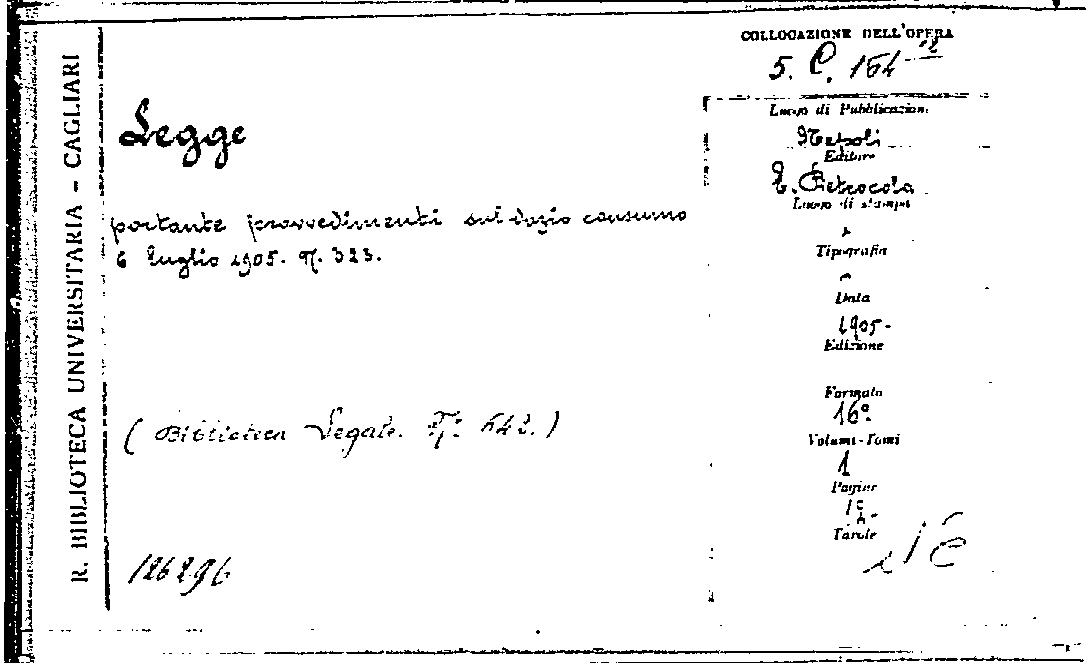 R. BIBLIOTECA UNIVERSITARIA - CAGLIARI
Legge
portante provvedimenti sul dazio consumo
6 luglio 1905. N. 323.
(Biblioteca Legale. N°. 642.)
126296
COLLOCAZIONE DELL'OPERA
5. C. 164
Luogo di Pubblicazione
Napoli
Editore
E. Pietrocola
Luogo di stampa
Tipografia
Data
1905-
Edizione
Formato
16°
Volumi-Tomi
1
Pagine
Tavole